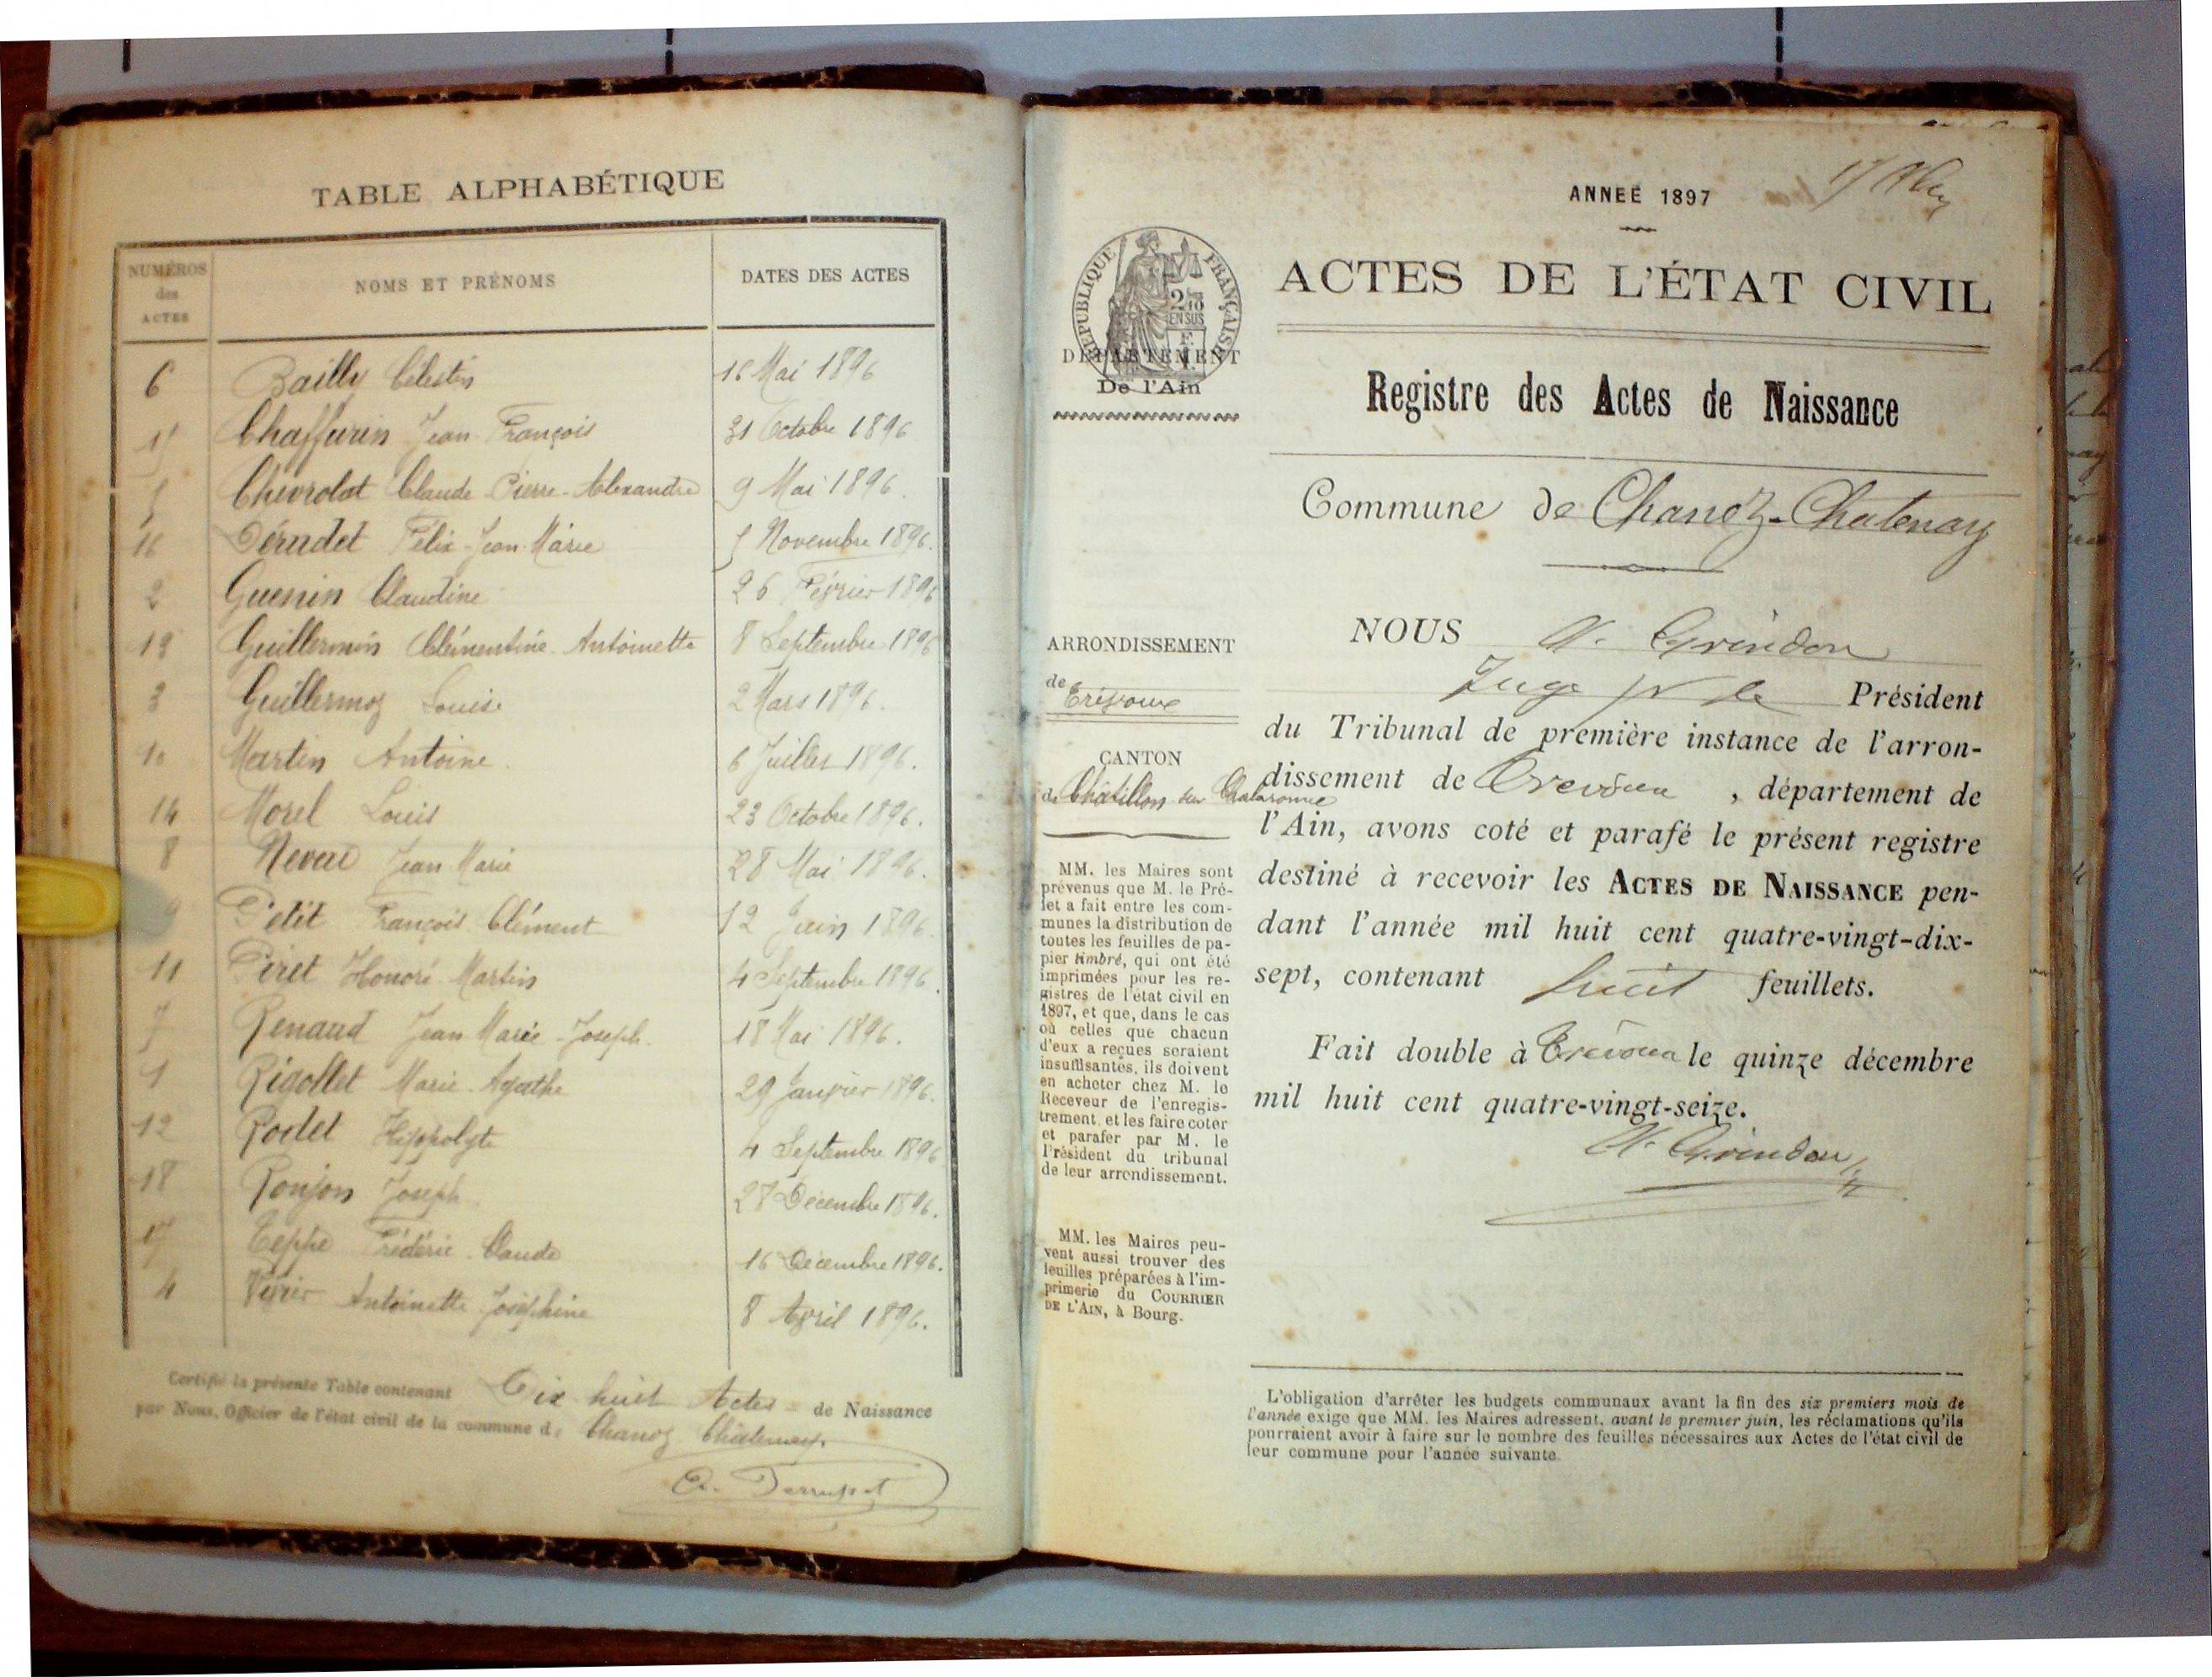 TABLE ALPHABÉTIQUE
NUMÉROS des ACTES NOMS ET PRÉNOMS DATES DES ACTES
6 Bailly Célestin 16 Mai 1896
15 Chaffurin Jean François 31 Octobre 1896
5 Chevrolat Claude-Pierre-Alexandre 9 Mai 1896.
16 Dérudet Félix-Jean-Marie 5 Novembre 1896.
2 Guenin Claudine 26 Février 1896
13 Guillermin Clémentine Antoinette 8 Septembre 1896
3 Guillermoz Louise 2 Mars 1896.
10 Martin Antoine. 6 Juillet 1896.
14 Morel Louis 23 Octobre 1896.
8 Jean Marie 28 Mai 1896.
9 Petit François Clément 12 Juin 1896.
11 Piret Honoré Martin 4 Septembre 1896.
7 Renaud Jean-Marie-Joseph. 18 Mai 1896.
1 Rigollet Marie-Agathe 29 Janvier 1896.
12 Rodet Hippolyte 4 Septembre 1896
18 Ronjon Joseph. 28 Décembre 1896.
17 Teppe Frédéric Claude 16 Décembre 1896.
4 Antoinette Joséphine 8 Avril 1896.
Certifié la présente Table contenant Dix huit Actes de Naissance
par Nous, Officier de l'état civil de la commune de Chanoz Châtenay.
ANNÉE 1897
ACTES DE L'ÉTAT CIVIL
RÉPUBLIQUE FRANÇAISE
DÉPARTEMENT
De l'Ain
Registre des Actes de Naissance
Commune de Chanoz-Chatenay
ARRONDISSEMENT
de Trévoux
CANTON
de Châtillon sur Chalaronne
MM. les Maires sont
prévenus que M. le Pré-
fet a fait entre les com-
munes la distribution de
toutes les feuilles de pa-
pier timbré, qui ont été
imprimées pour les re-
gistres de l'état civil en
1897, et que, dans le cas
où celles que chacun
d'eux a reçues seraient
insuffisantes, ils doivent
en acheter chez M. le
Receveur de l'enregis-
trement, et les faire coter
et parafer par M. le
Président du tribunal
de leur arrondissement.
MM. les Maires peu-
vent aussi trouver des
feuilles préparées à l'im-
primerie du COURRIER
DE L'AIN, à Bourg.
NOUS A. Grindon
Juge pr le Président
du Tribunal de première instance de l'arron-
dissement de Trévoux, département de
l'Ain, avons coté et parafé le présent registre
destiné à recevoir les ACTES DE NAISSANCE pen-
dant l'année mil huit cent quatre-vingt-dix-
sept, contenant huit feuillets.
Fait double à Trévoux le quinze décembre
mil huit cent quatre-vingt-seize.
A. Grindon
L'obligation d'arrêter les budgets communaux avant la fin des six premiers mois de
l'année exige que MM. les Maires adressent, avant le premier juin, les réclamations qu'ils
pourraient avoir à faire sur le nombre des feuilles nécessaires aux Actes de l'état civil de
leur commune pour l'année suivante.